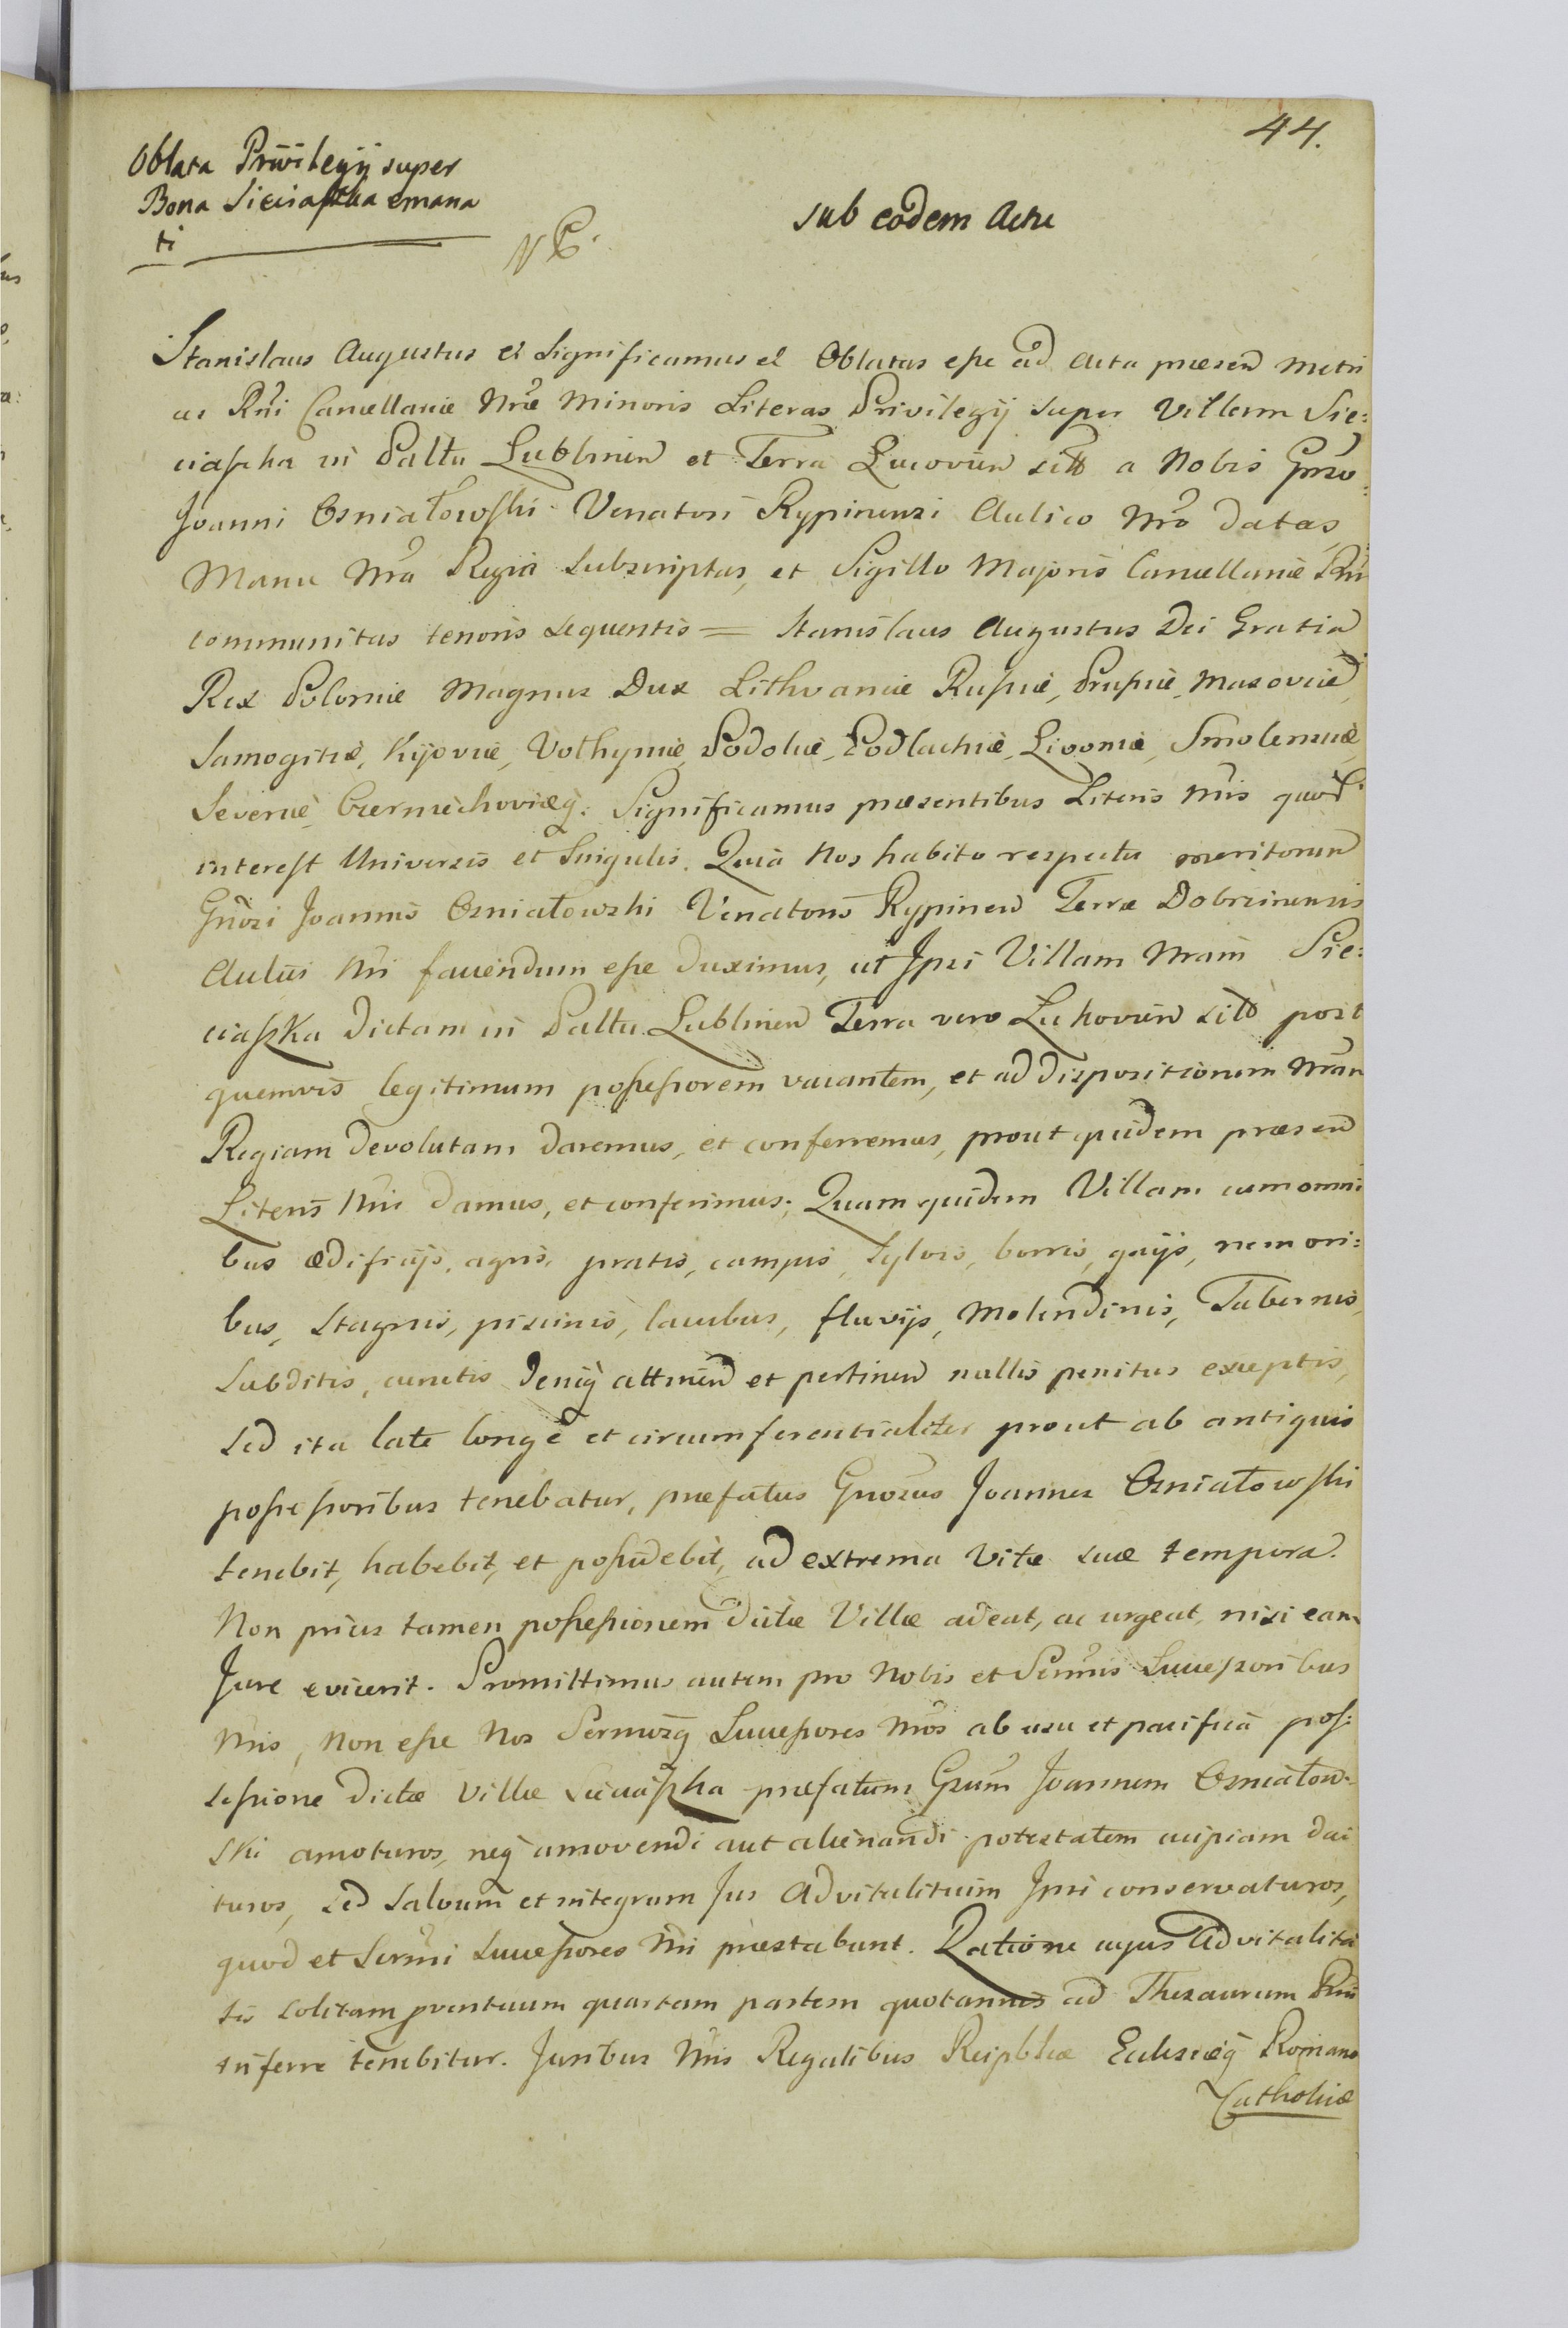 44.
Oblata Privilegij super
Bona Sieciaszka emana
ti
sub eodem Actu
Stanislaus Augustus et Significamus et Oblatas esse ad Acta præsen Metri
ces Rni Cancellariæ Nræ Minoris Literas Privilegij super Villam Sie:
ciaszka in Palttu Lublinen et Terra Lucovien sitt a Nobis Gnzo
Joanni Osniałowski Venatori Rypinensi Aulico Nro datas,
Manu Nra Regia subscriptas, et Sigillo Majoris Cancellariæ Rni
communitas tenoris sequentis = Stanislaus Augustus Dei Gratia
Rex Poloniæ Magnus Dux Lithvaniæ Russiæ, Prussiæ, Masoviæ,
Samogitiæ, Kijoviæ, Volhyniæ, Podoliæ, Podlachiæ, Livoniæ, Smolensciæ,
Severiæ, Czerniechoviæq. Significamus præsentibus Literis Nris quod
interest Universis et Singulis. Quia Nos habito respectu meritorum
Gnosi Joannis Osniałowski Venatoris Rypinen Terræ Dobrinensis
Aulici Nri favendum esse duximus, ut Ipsi Villam Nram Sie:
ciaszka dictam in Palttu Lublinen Terra vero Lukovien sitt post
quemvis legitimum possessorem vacantem, et ad dispositionem Nram
Regiam devolutam daremus, et conferremus, prout quidem præsen
Literis Nris damus, et conferimus; Quam quidem Villam cum omni
bus ædificijs, agris, pratis, campis, sylvis, borris, gaijs, nemori:
bus, stagnis, piscinis, lacubus, fluvijs, Molendinis, Tabernis,
Subditis, cunctis deniq attinen et pertinen nullis penitus exceptis,
sed ita late longè et circumferentialiter prout ab antiquis
possessoribus tenebatur, præfatus Gnosus Joannes Osniałowski
tenebit, habebit, et possidebit, ad extrema Vitæ suæ tempora.
Non prius tamen possessionem dictæ Villæ adeat, ac urgeat, nisi eam
Jure evicerit. Promittimus autem pro Nobis et Sermis Successoribus
Nris, Non esse Nos Sermosq Successores Nros ab usu et pacifica pos:
sessione dictæ Villæ Sieciaszka præfatum Gsum Joannem Osniałow:
ski amoturos, neq amovendi aut alienandi potestatem cuipiam da
turos, sed salvum et integrum Jus Advitalitium Ipsi conservaturos,
quod et Sermi Successores Nri præstabunt. Ratione cujus Advitalita
tis solitam proventuum quartam partem quotannis ad Thesaurum Rni
inferre tenebitur. Juribus Nris Regalibus Reipblicæ Eccleziæq Romano
Catholicæ